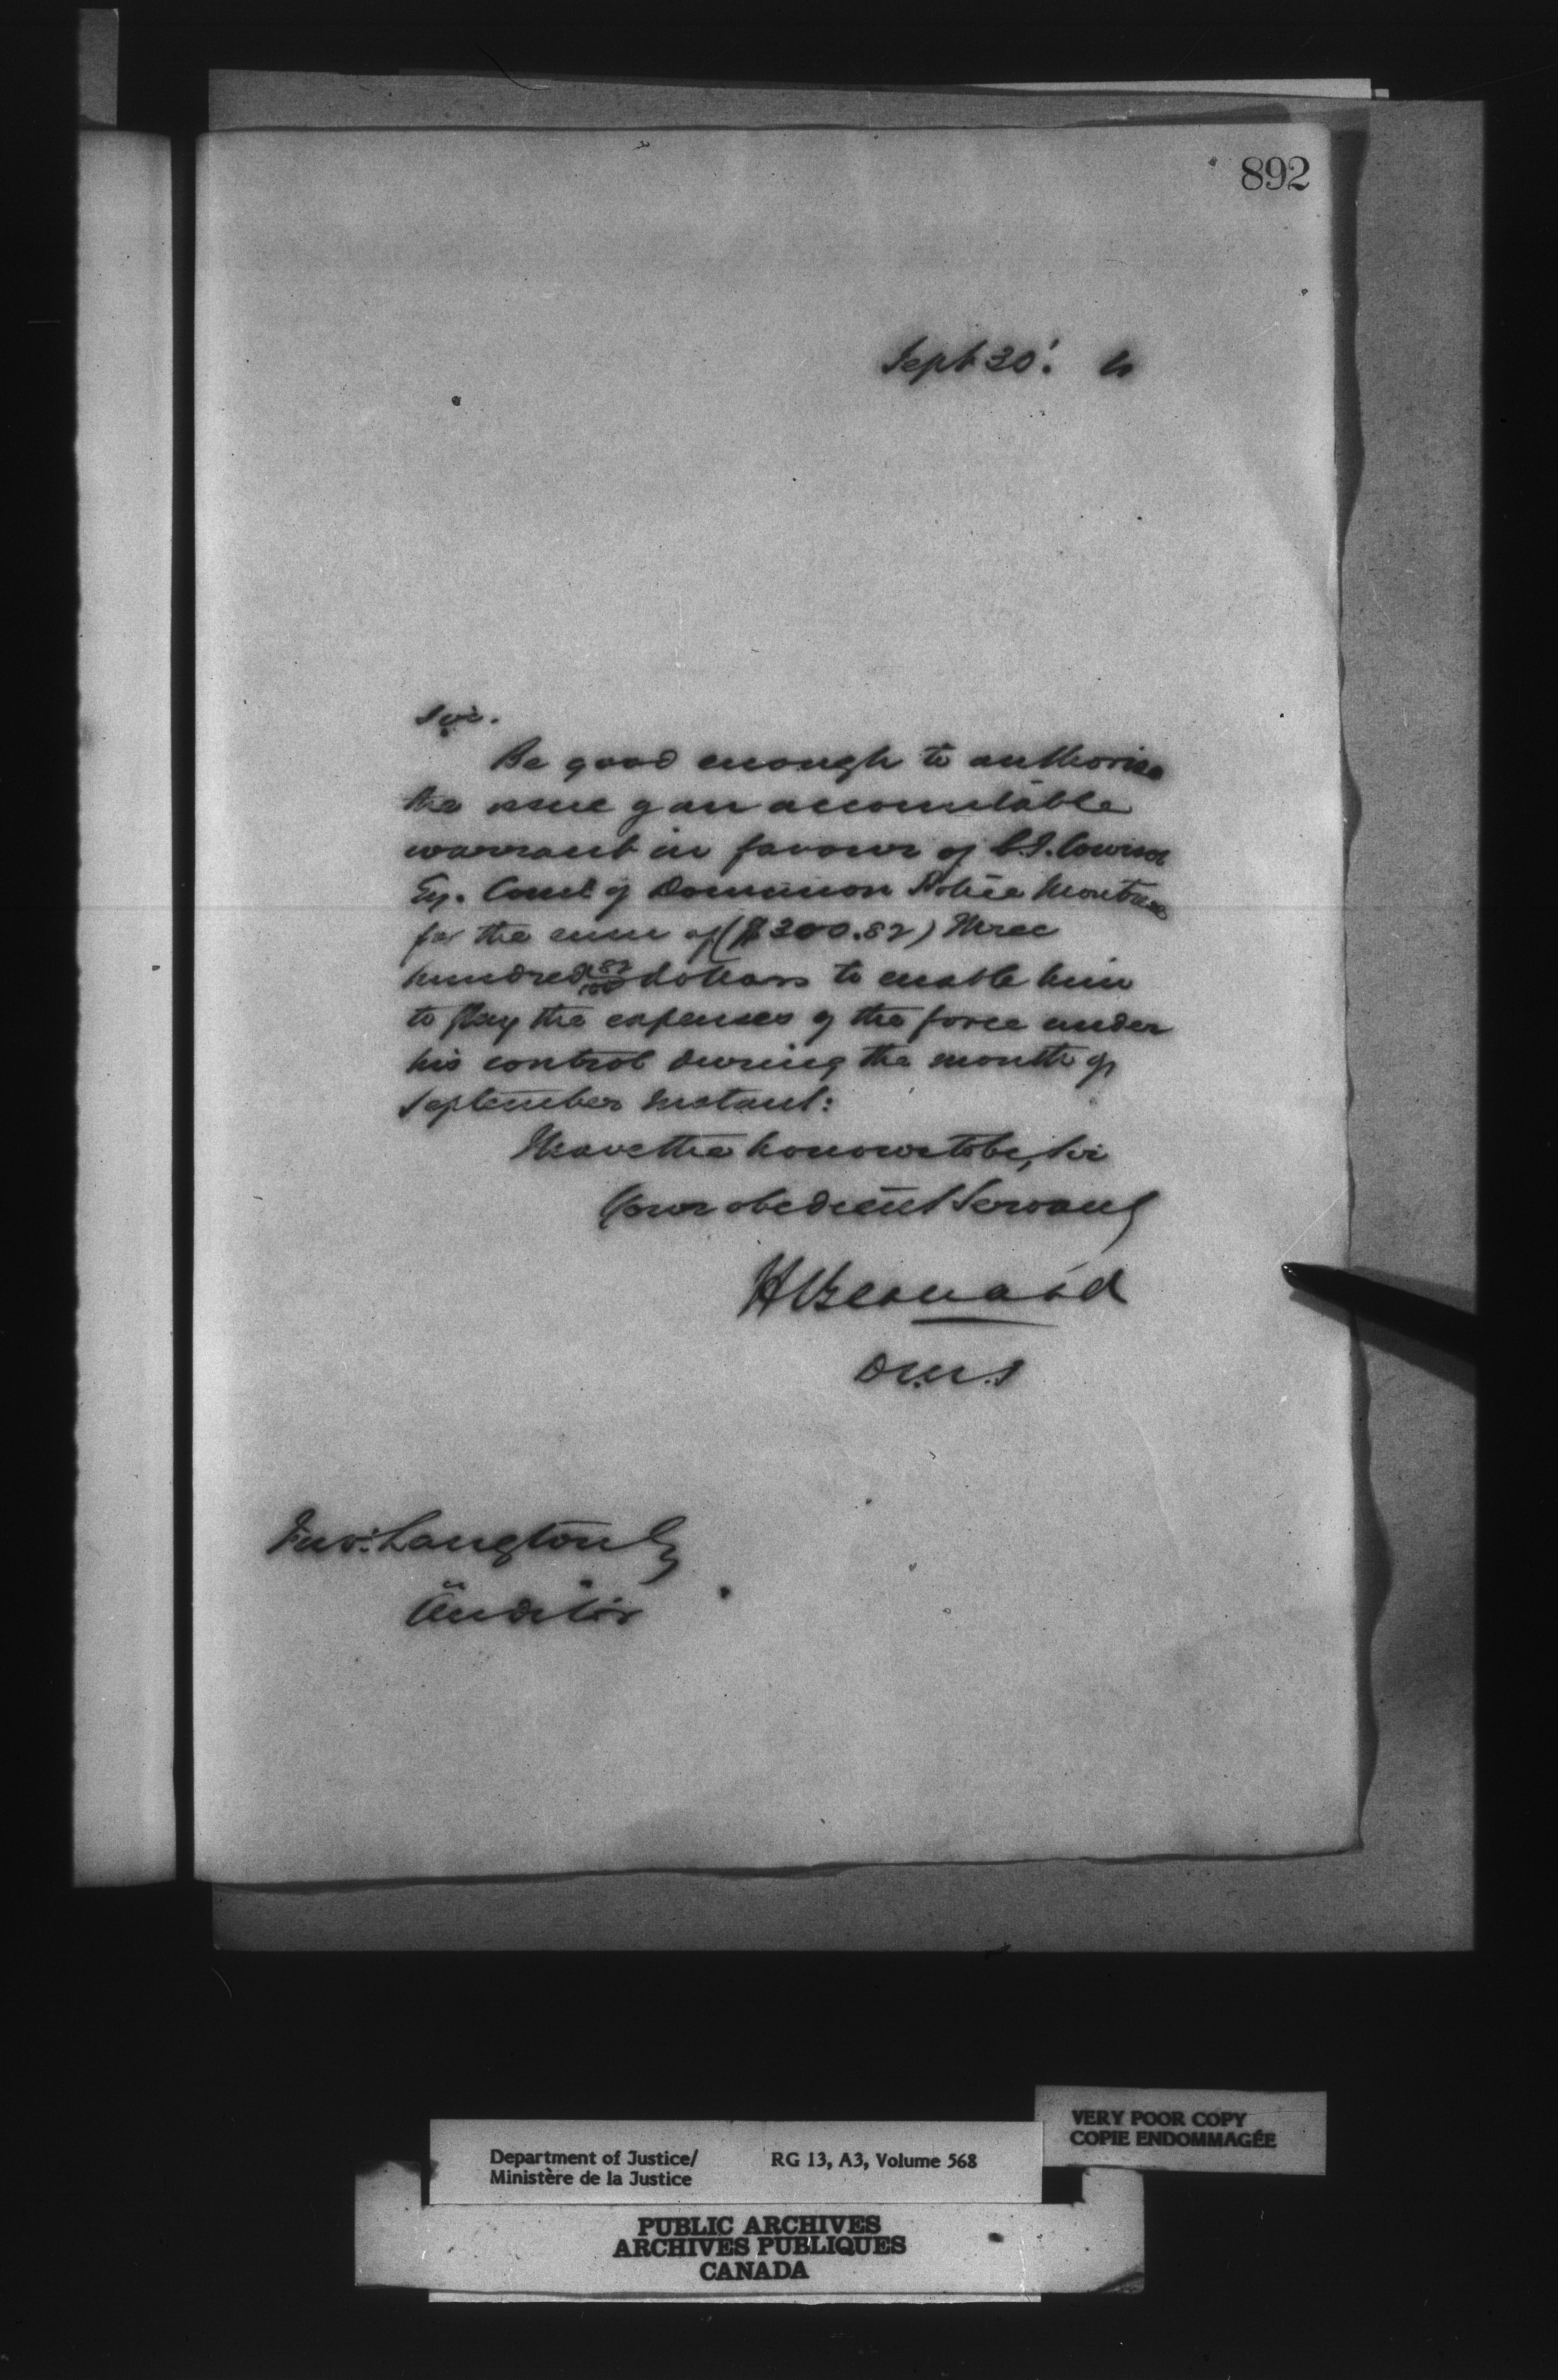 892
Sept 30.
Sir.
Be good enough to authorise
the issue of an accountable
warrant in favour of C.J. Coursol
Esq. Comr of Dominion Police Montreal
for the sum of ($300.82) Three
hundred 82/100 dollars to enable him
to pay the expenses of the force under
his control during the month of
September instant:
I have the honour to be, Sir
Your obedient Servant
H Bernard
D.M.J
Jno. Langton Esq
Auditor
VERY POOR COPY
COPIE ENDOMMAGÉE
Department of Justice/ RG 13, A3, Volume 568
Ministère de la Justice
PUBLIC ARCHIVES
ARCHIVES PUBLIQUES
CANADA